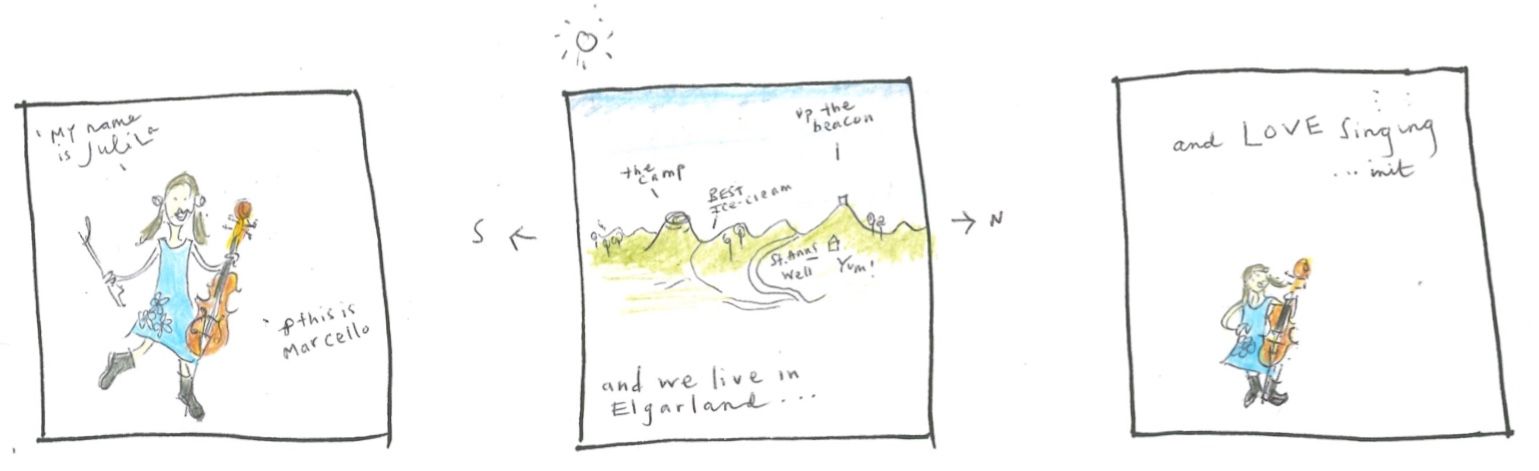 My name
is Julila
this is
Marcello
S
the
camp
BEST
Ice-cream
up the
beacon
St. Anns
Well
Yum!
N
and we live in
Elgarland...
and LOVE singing
... init